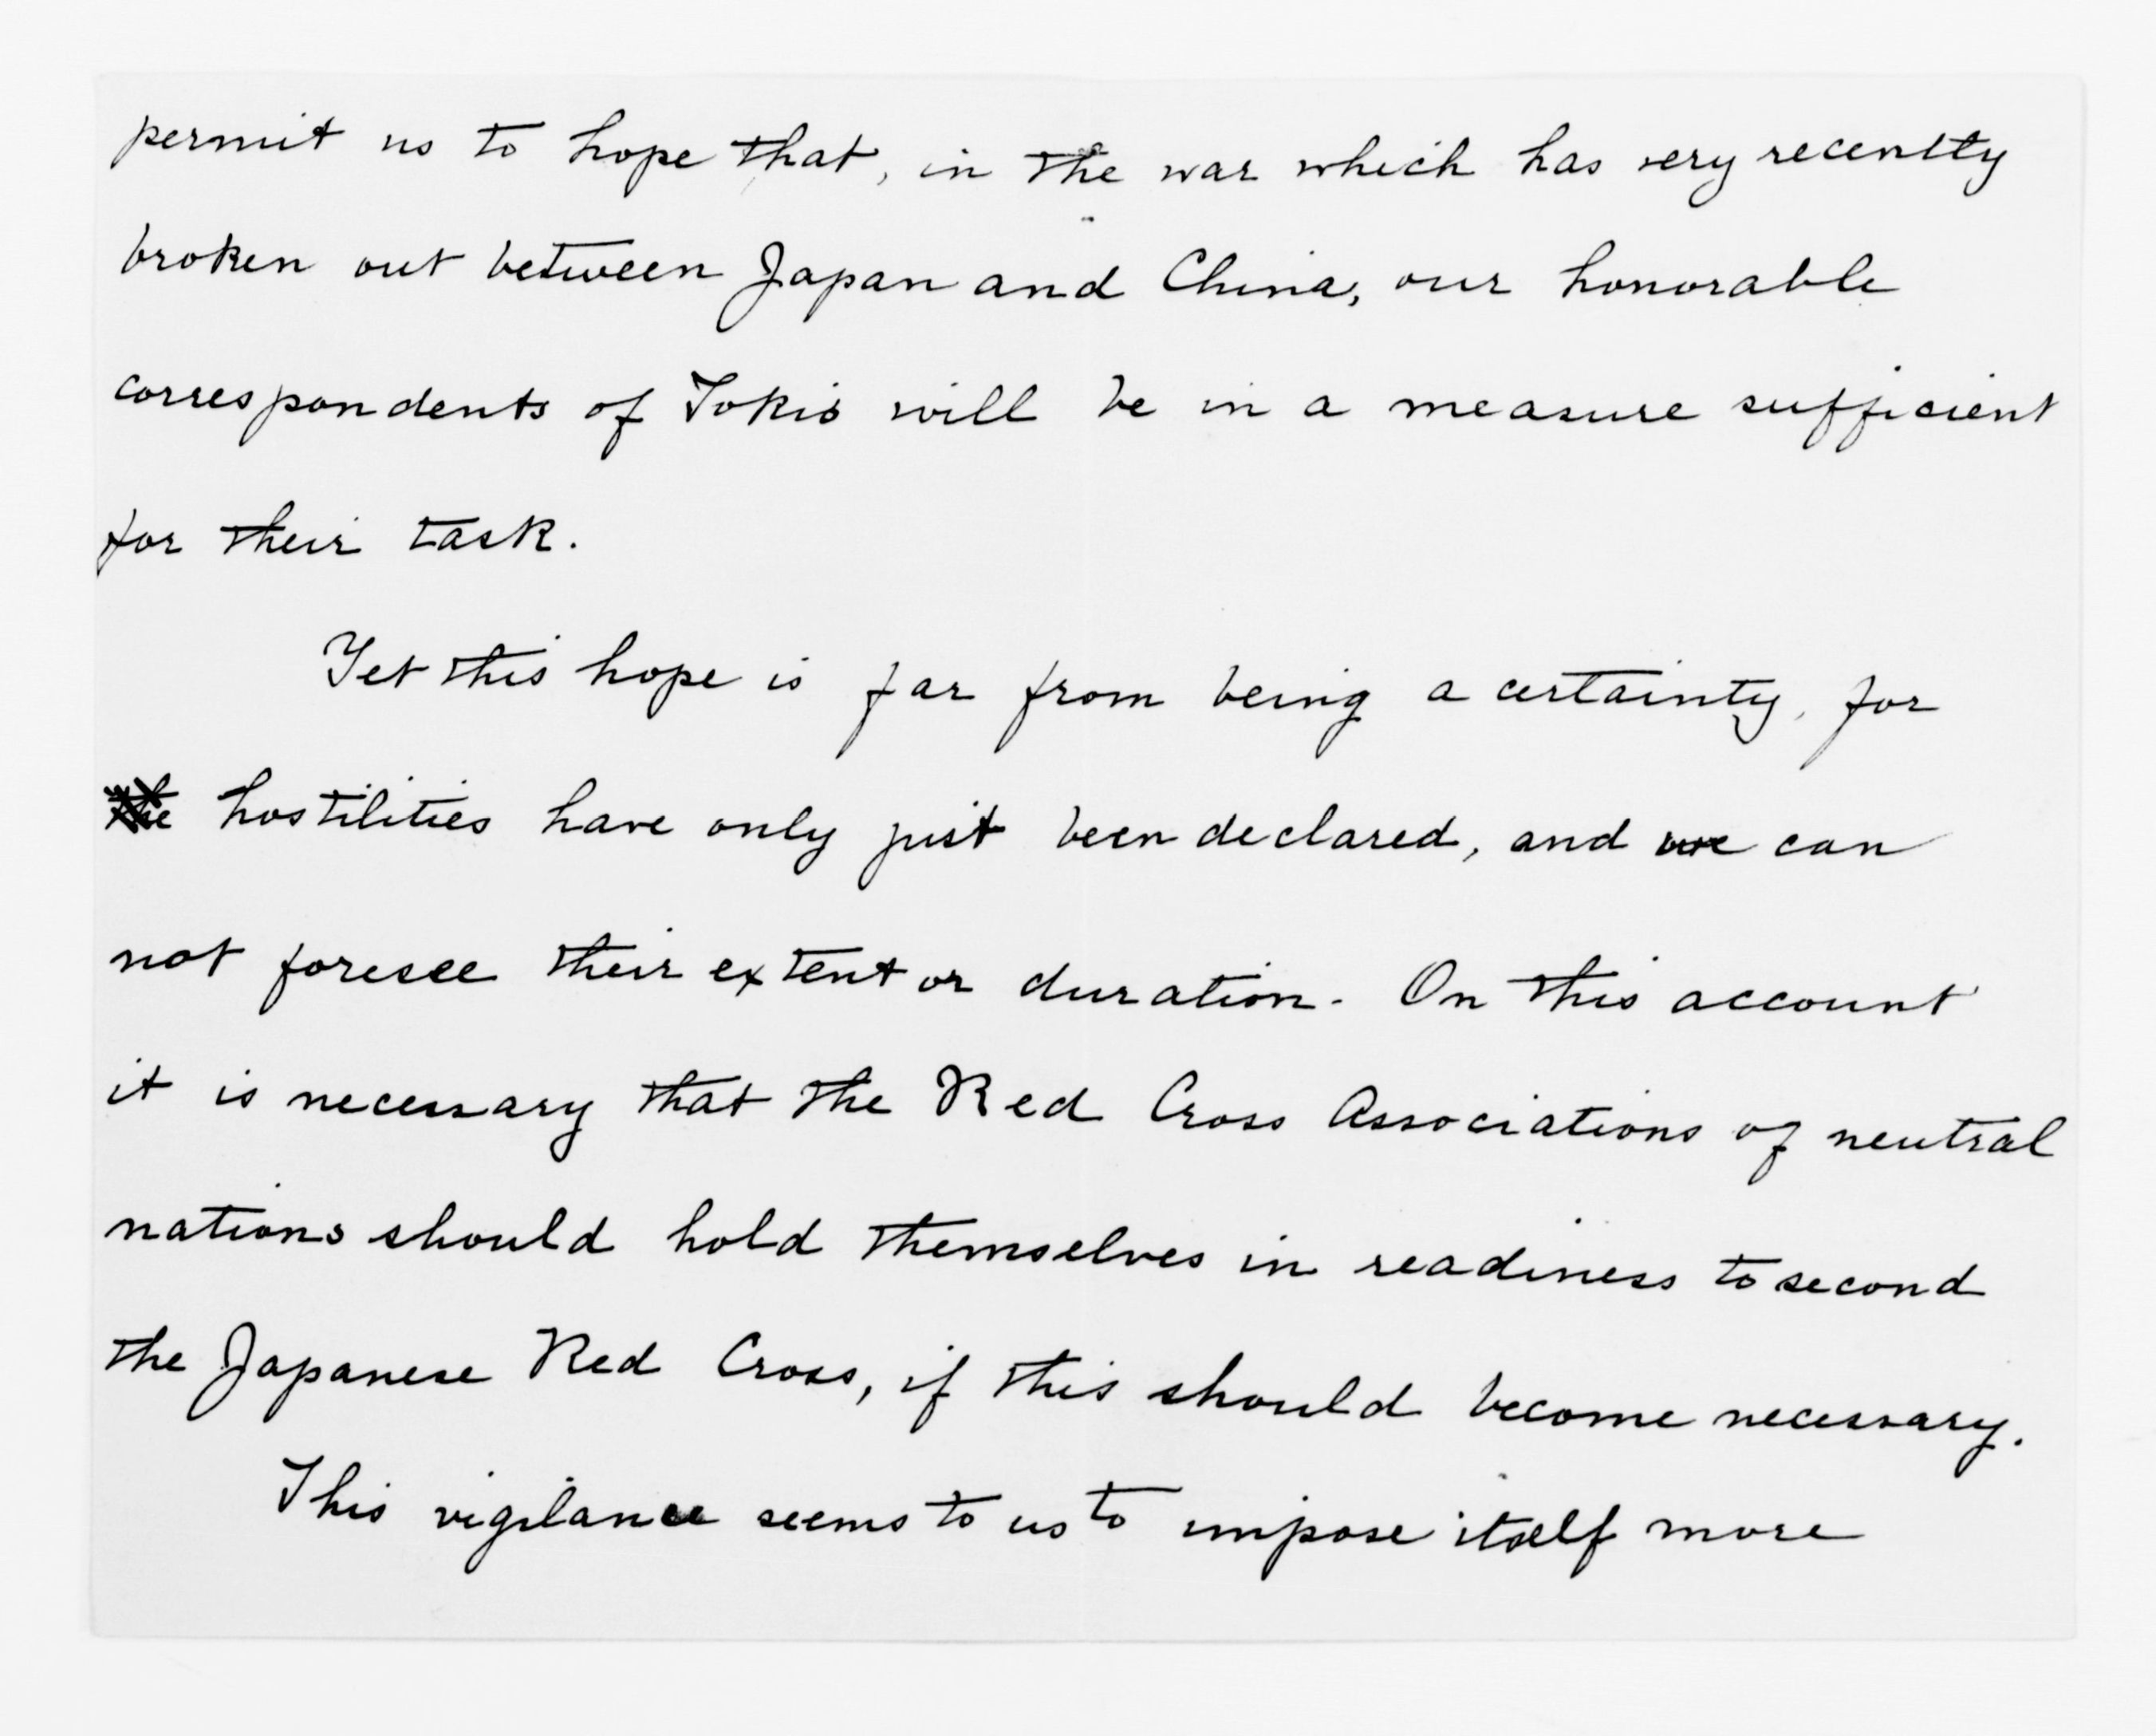 permit us to hope that, in the war which has very recently
broken out between Japan and China, our honorable
correspondents of Tokio will be in a measure sufficient
for their task.
Yet this hope is far from being a certainty, for
the hostilities have only just been declared, and we can
not foresee their extent or duration. On this account
it is necessary that the Red Cross Associations of neutral
nations should hold themselves in readiness to second
the Japanese Red Cross, if this should become necessary.
This vigilance seems to us to impose itself more